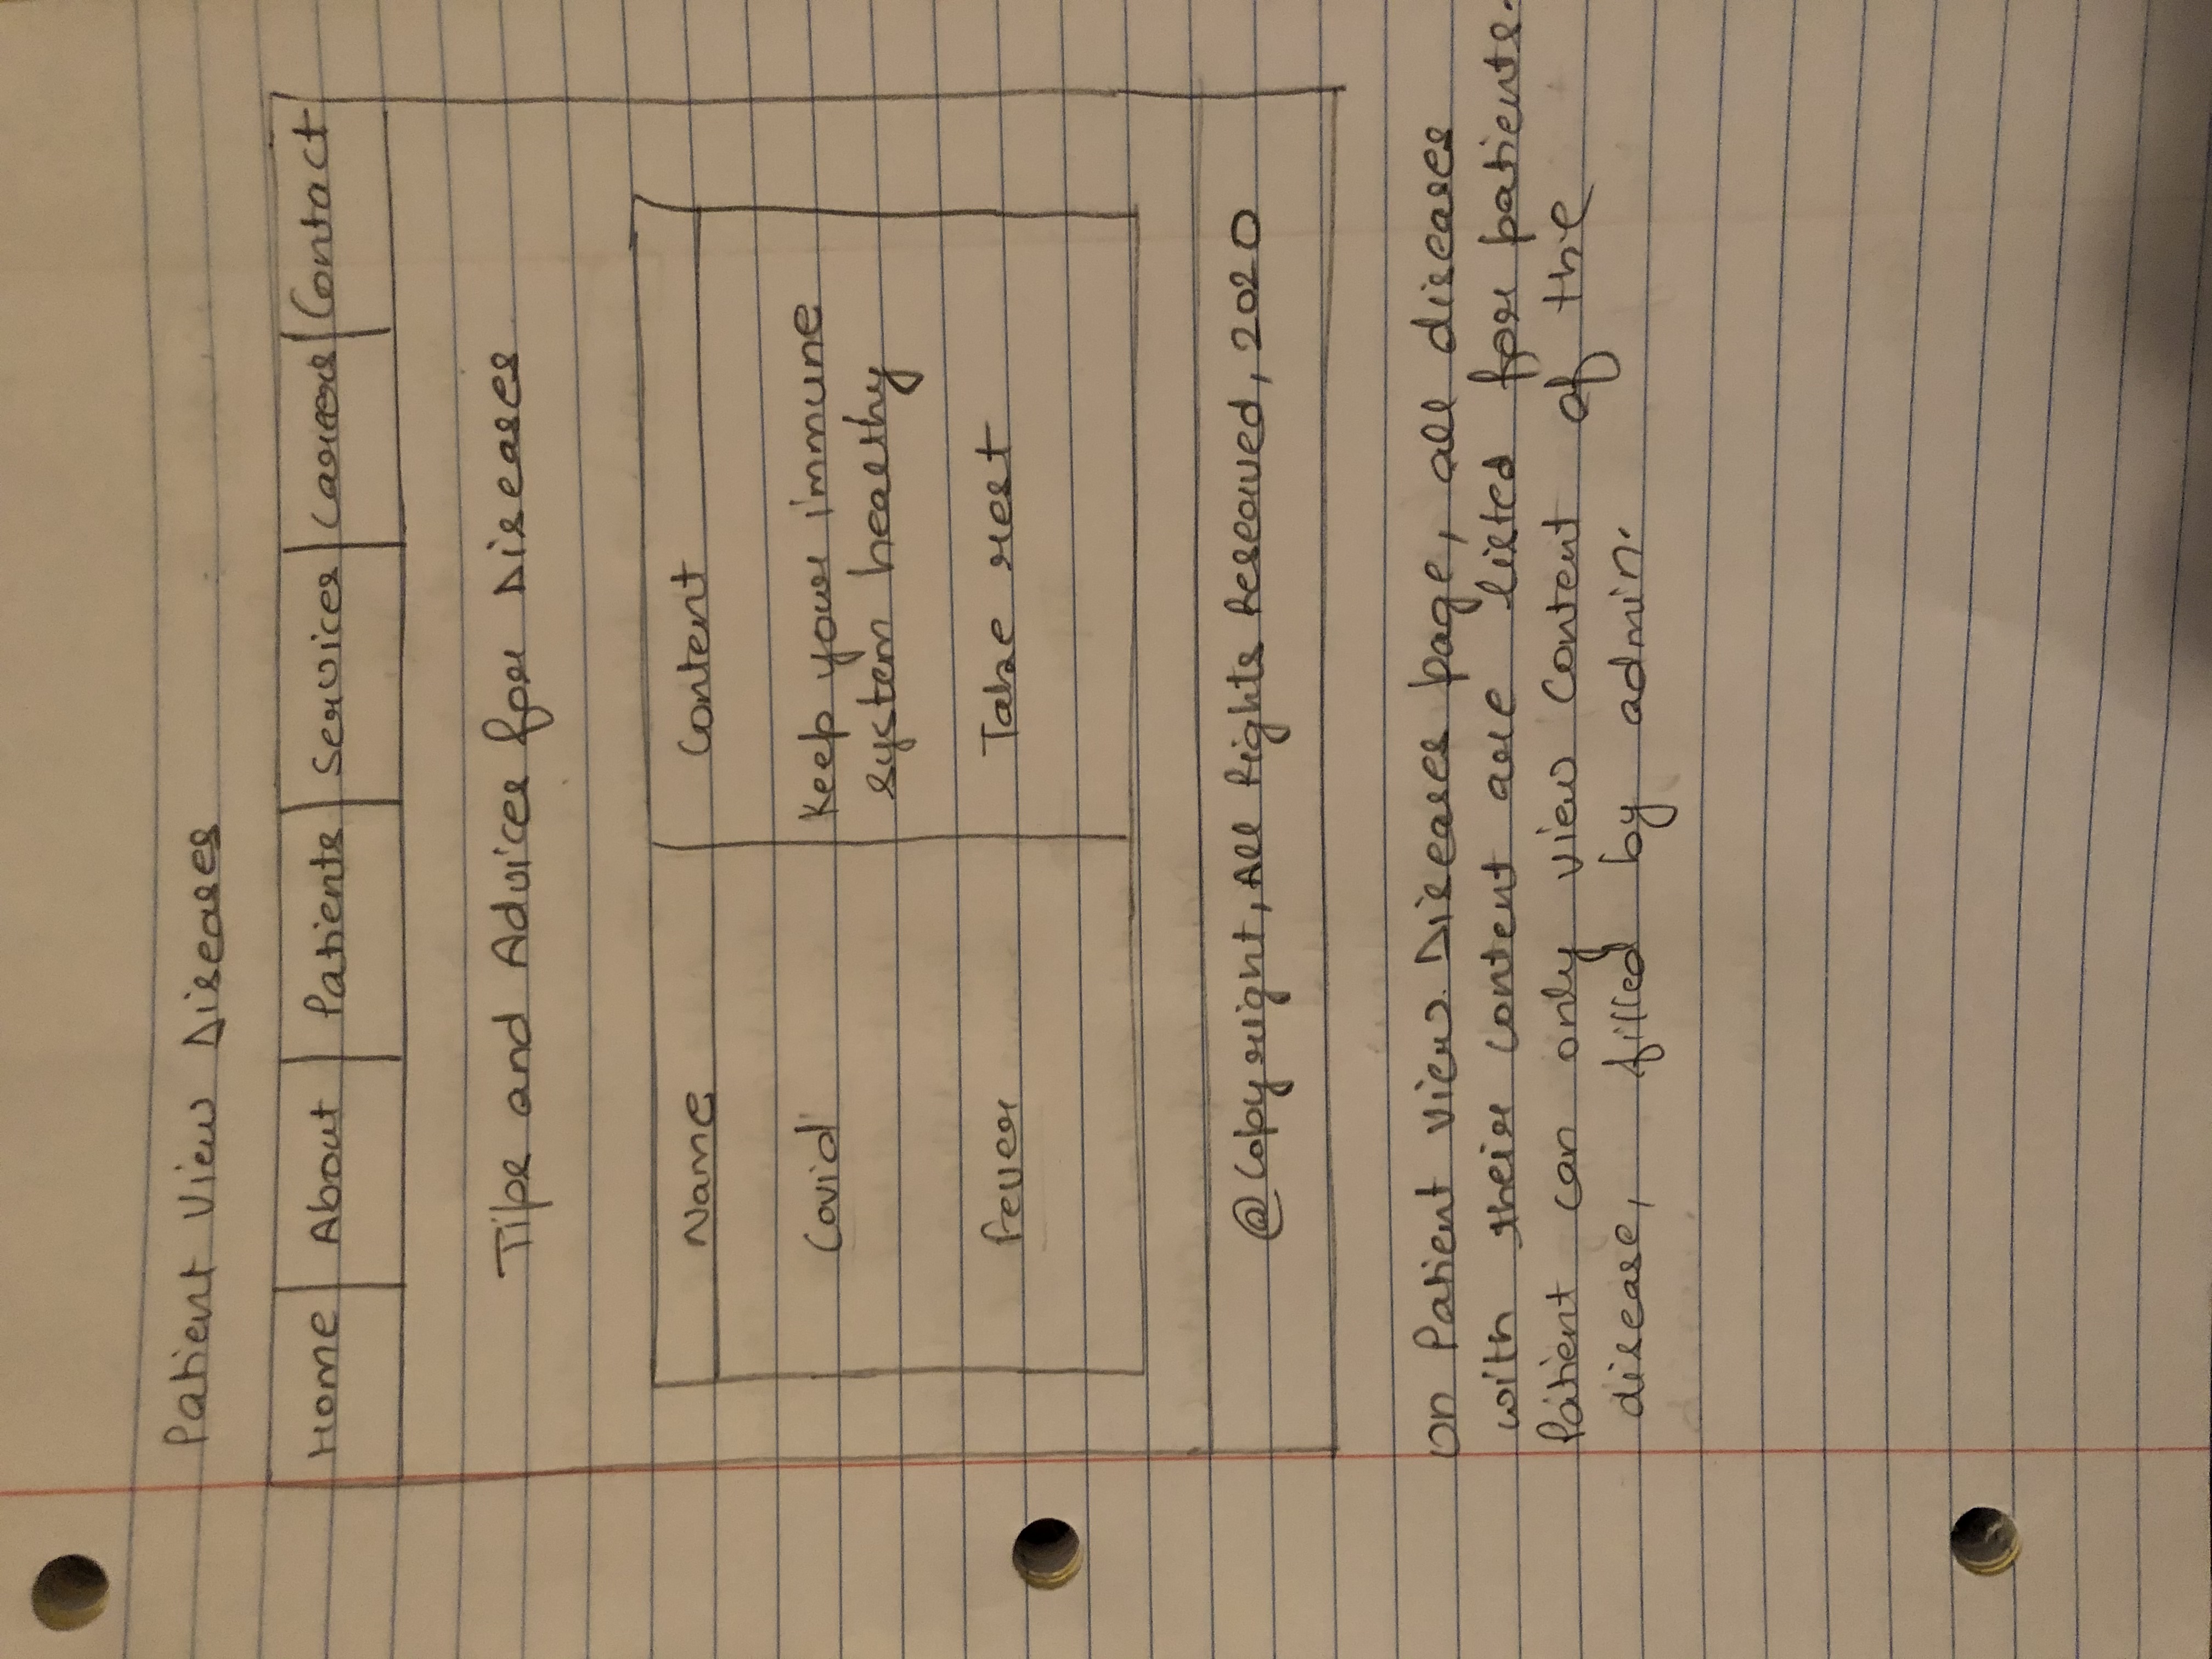 Patient View Diseases
Home About Patients Services Careers Contact
Tips and Advices for Diseases
Name Content
Covid Keep your immune
system healthy
Fever Take rest
@Copyright, All Rights Reserved, 2020
On Patient View Diseases page, all diseases
with their content are listed for patients.
Patient can only view content of the
disease, filled by admin.